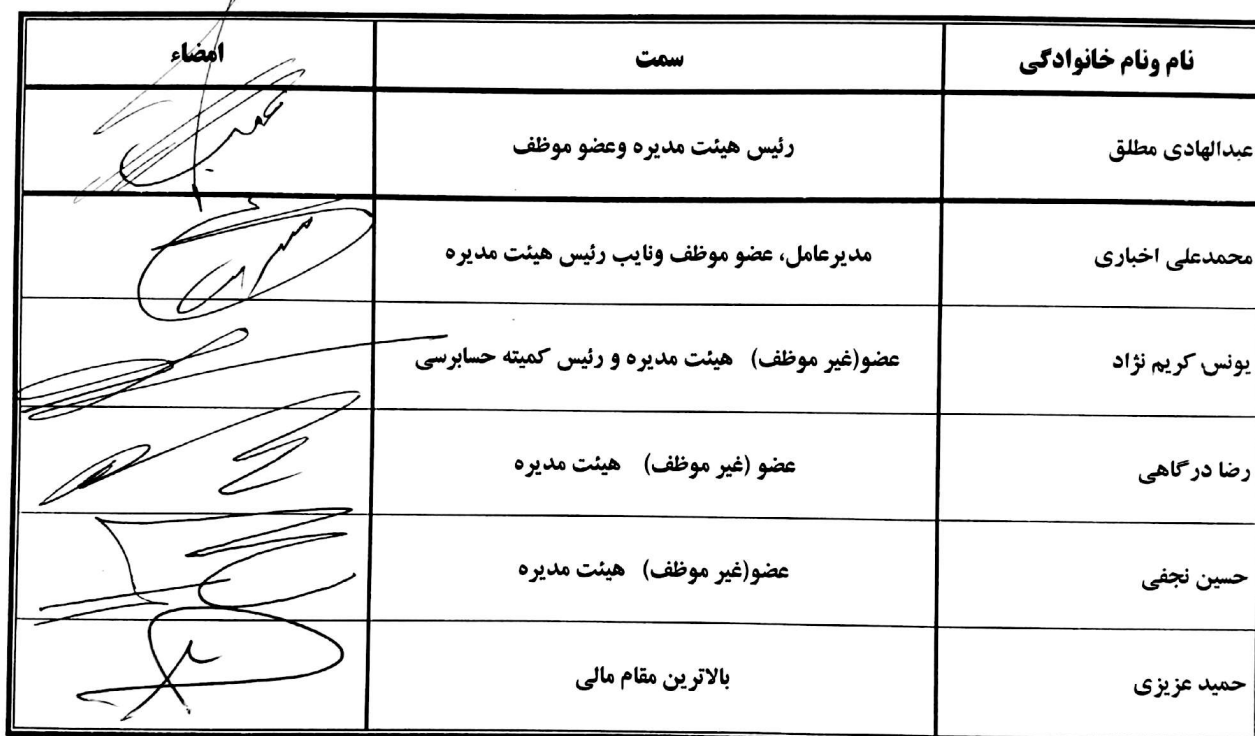 نام ونام خانوادگی سمت امضاء
عبدالهادی مطلق رئیس هیئت مدیره وعضو موظف
محمدعلی اخباری مدیرعامل، عضو موظف ونایب رئیس هیئت مدیره
یونس کریم نژاد عضو(غیر موظف) هیئت مدیره و رئیس کمیته حسابرسی
رضا درگاهی عضو (غیر موظف) هیئت مدیره
حسین نجفی عضو(غیر موظف) هیئت مدیره
حمید عزیزی بالاترین مقام مالی